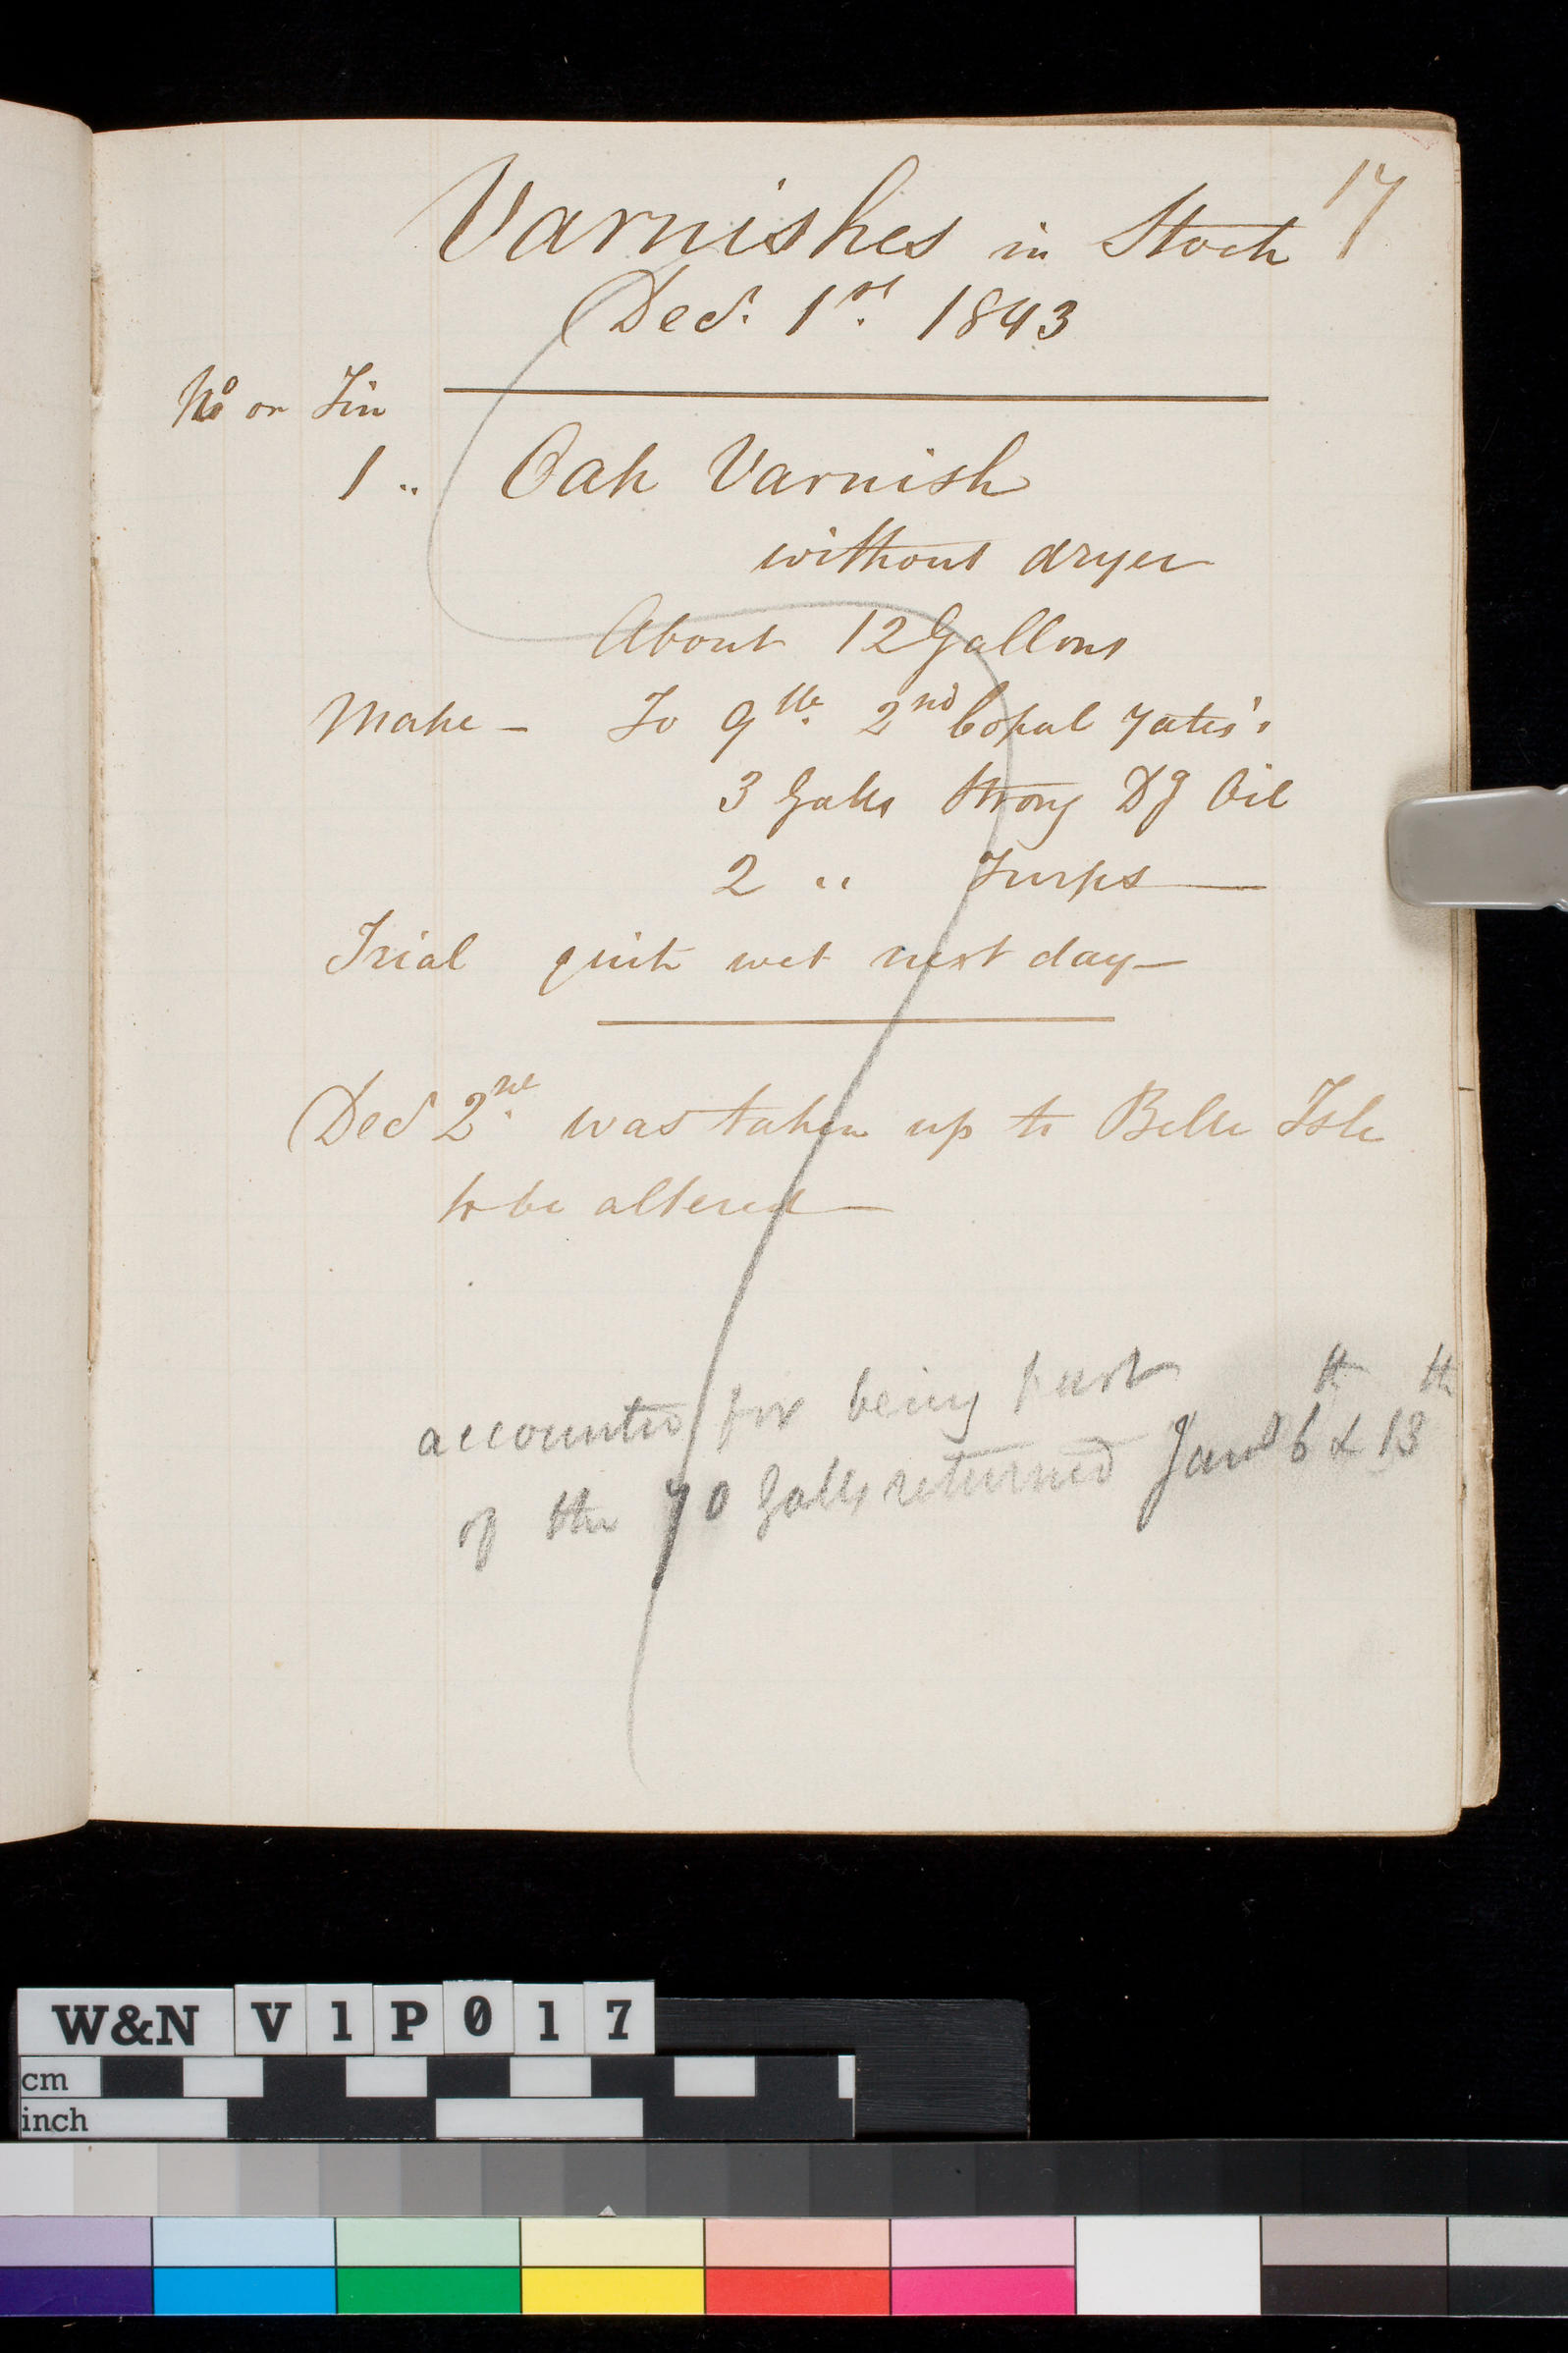 17
Varnishes in Stock
Decr. 1st. 1843
No on Tin
1 " Oak Varnish
without dryer
About 12 Gallons
Make - To 9 lbs. 2nd Copal Yates's
3 Galls Strong Dg Oil
2 " Turps
Trial quite wet next day
Decr 2nd. was taken up to Belle Isle
to be altered
accounted for being part
of the 70 Galls returned Jany 6th & 13th
W&N V1P017
cm
inch